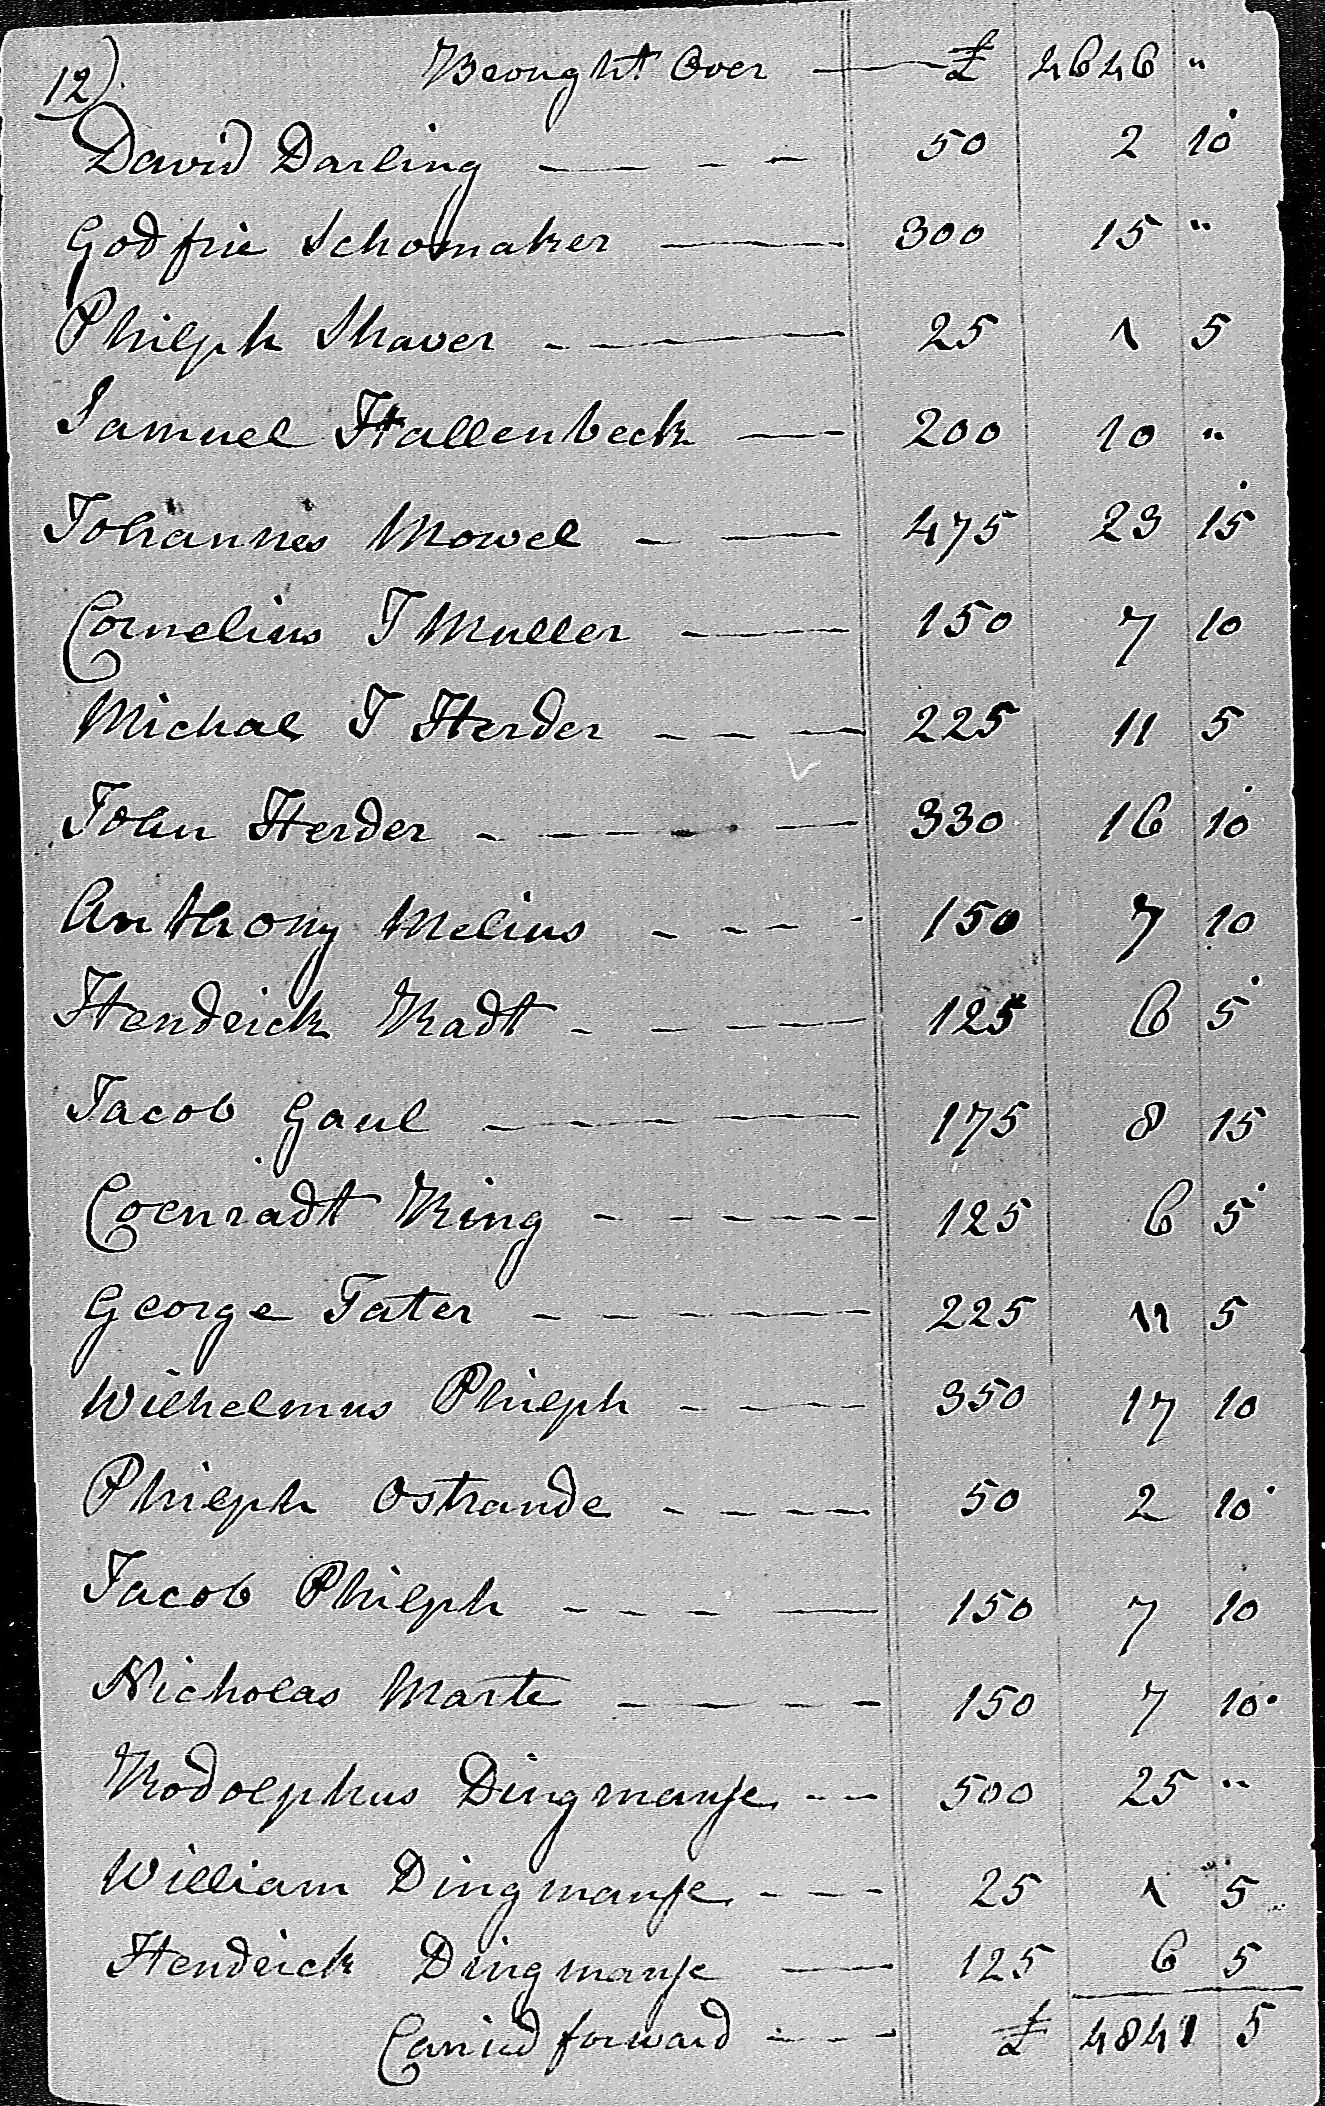 12). Brought Over — £ 4646 "
David Darling — - - 50 2 10
Godfrie Schomaker — 300 15 "
Philiph Shaver - — 25 1 5
Samuel Hallenbeck — 200 10 "
Johannes Mowel - — 475 23 15
Cornelius J Muller — 150 7 10
Michal J Herder - - — 225 11 5
John Herder - — — 330 16 10
Anthony Melius - - - 150 7 10
Hendrick Radt - - — 125 6 5
Jacob Gaul - — — 175 8 15
Coenradt Ring - - - - 125 6 5
George Tater - - - — 225 11 5
Wilhelmus Philiph - - — 350 17 10
Philiph Ostrande - - - - 50 2 10
Jacob Philiph - - - — 150 7 10
Nicholas Marte - - - - 150 7 10
Rodolphus Dingmanse - - 500 25 "
William Dingmanse - - - 25 1 5
Hendrick Dingmanse — 125 6 5
Carried forward - - - £ 4841 5